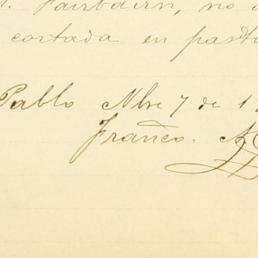 Fairbairn, no
cortada en part
Pablo Nbre 7 de 1
Franco. A